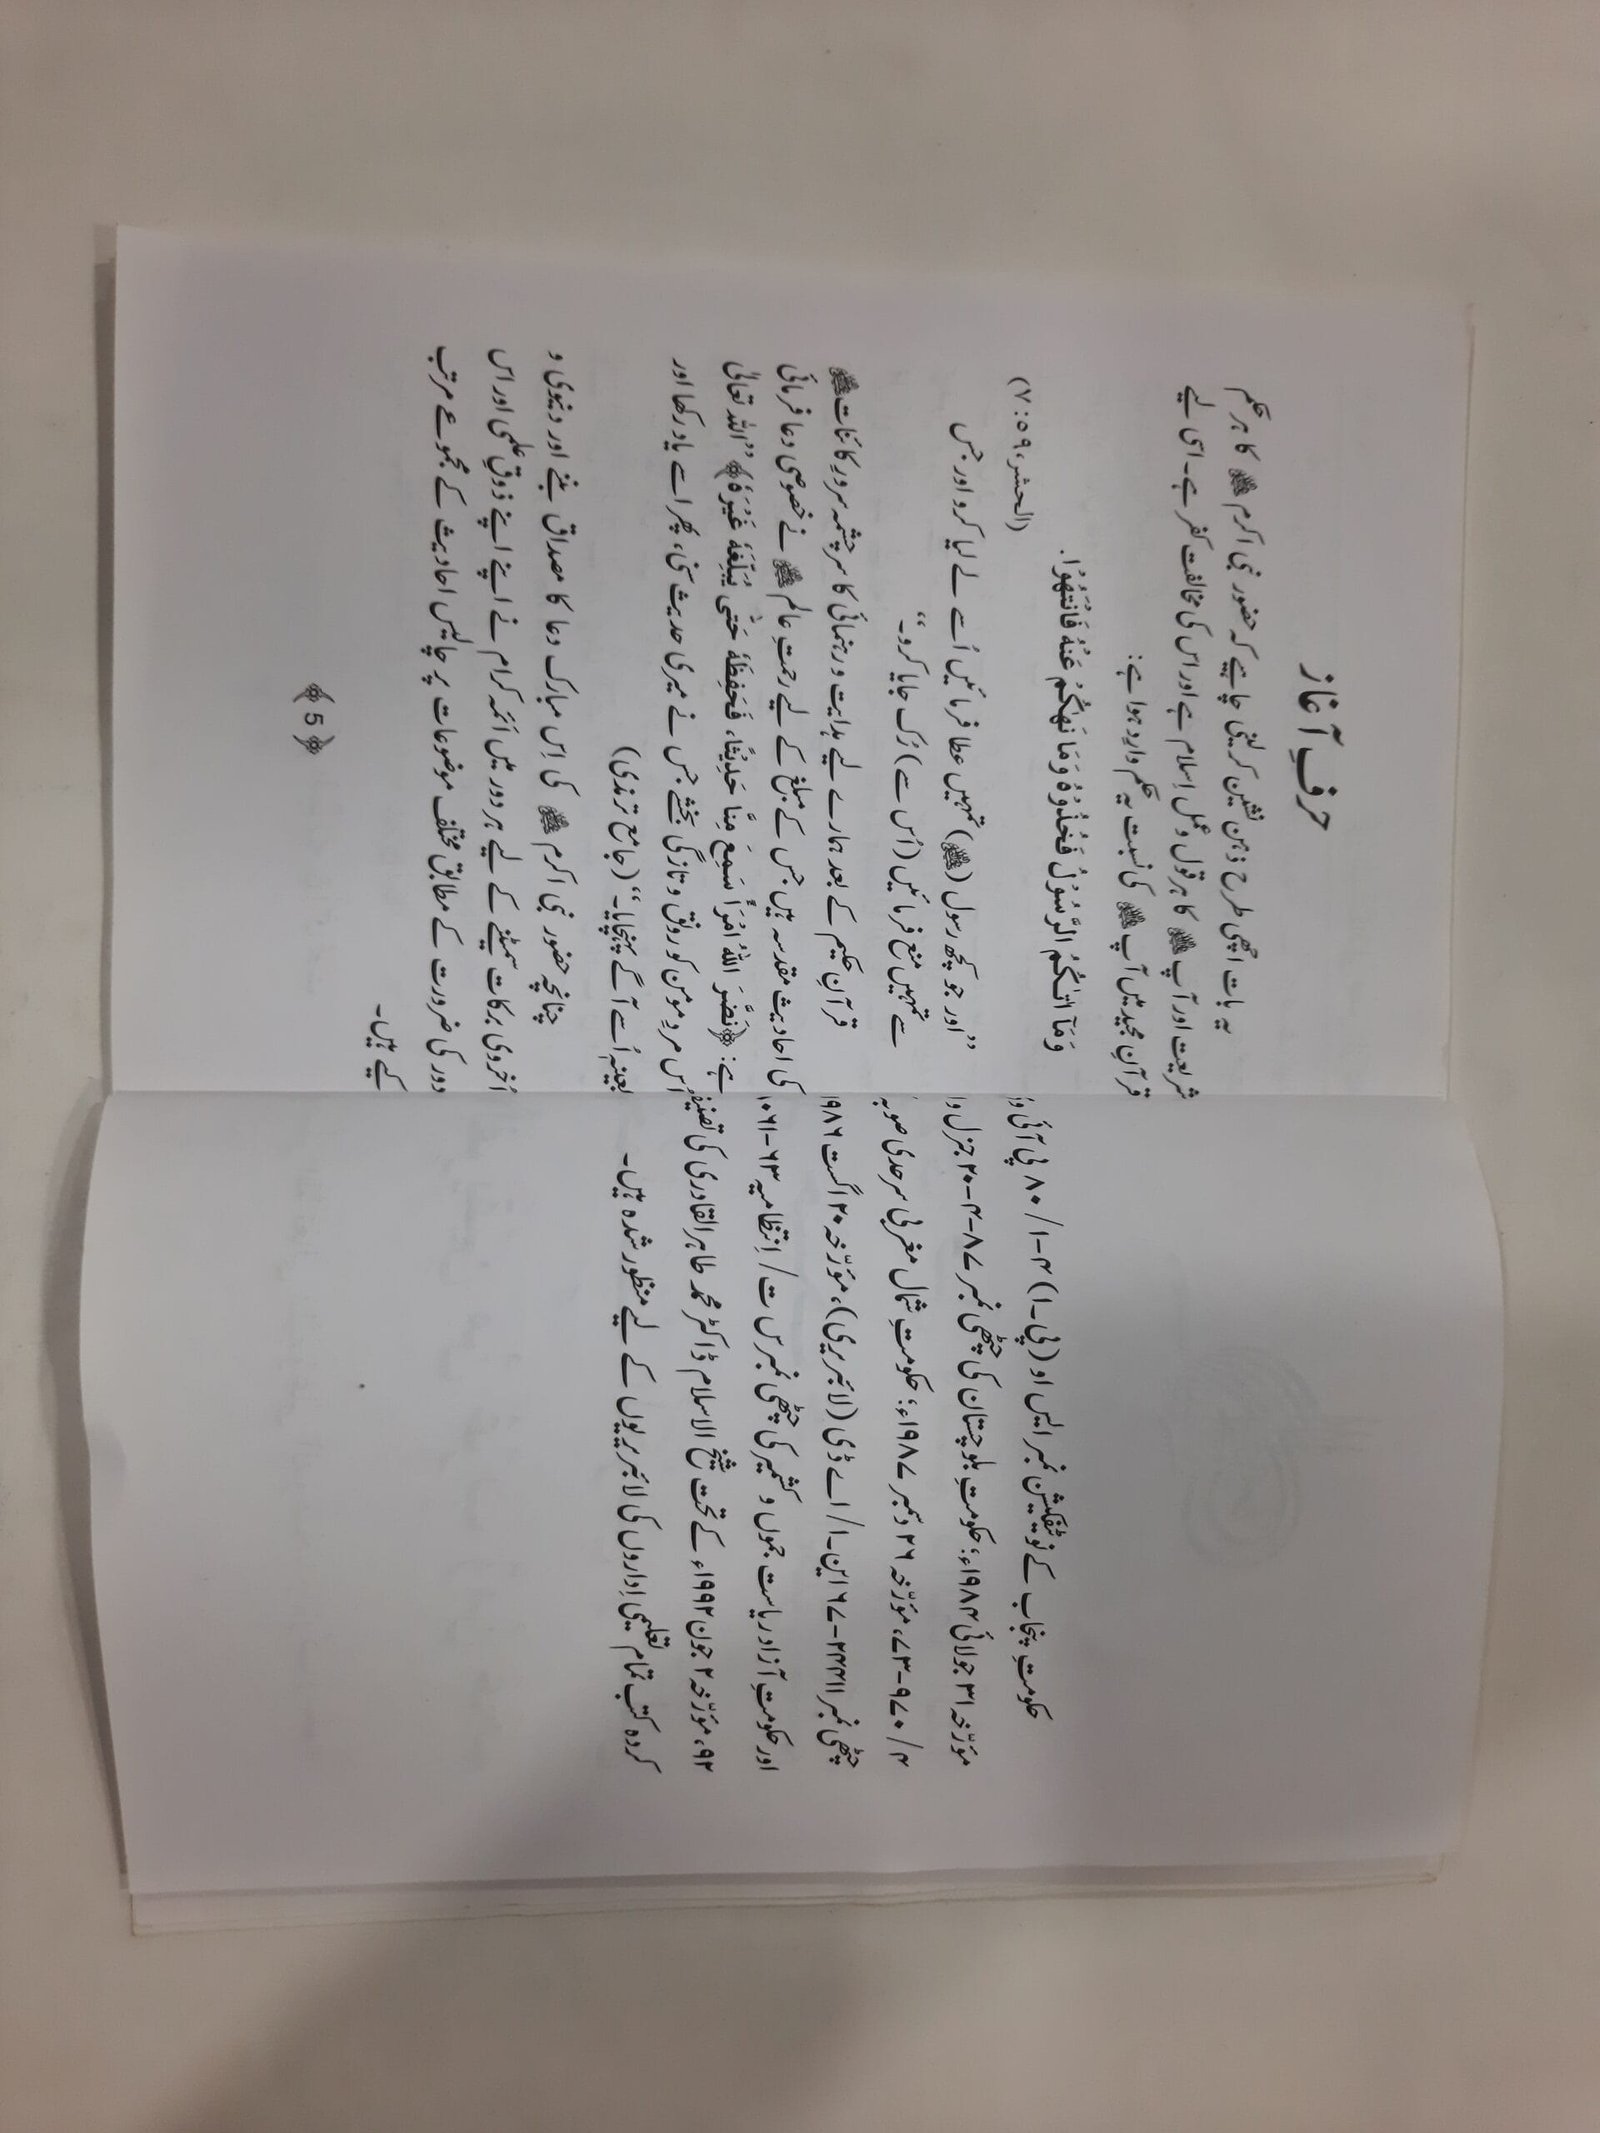 حکومتِ پنجاب کے نوٹیفکیشن نمبر ایس او (پی۔۱) ۴-۱/ ۸۰ پی آئی
مؤرّخہ ۳۱ جولائی ۱۹۸۴ء؛ حکومتِ بلوچستان کی چٹھی نمبر ۸۷-۴-۲۰ جنرل
۴/ ۹۷۰-۷۳، مؤرّخہ ۲۶ دسمبر ۱۹۸۷ء؛ حکومتِ شمال مغربی سرحدی صوبہ
چٹھی نمبر ۲۴۴۱۱-۶۷ این۔۱/ اے ڈی (لائبریری)، مؤرّخہ ۲۰ اگست ۱۹۸۶
اور حکومتِ آزاد ریاست جموں و کشمیر کی چٹھی نمبر س ت/ اِنتظامیہ ۶۳-۸۰۶۱
۹۲، مؤرّخہ ۲ جون ۱۹۹۲ء کے تحت شیخ الاسلام ڈاکٹر محمد طاہر القادری کی تصنیف
کردہ کتب تمام تعلیمی اِداروں کی لائبریریوں کے لیے منظور شدہ ہیں۔
حرفِ آغاز
یہ بات اچھی طرح ذہن نشین کرلینی چاہیے کہ حضور نبی اکرم ﷺ کا ہر حکم
شریعت اور آپ ﷺ کا ہر قول و عمل اِسلام ہے اور اس کی مخالفت کفر ہے۔ اسی لیے
قرآنِ مجید میں آپ ﷺ کی نسبت یہ حکم وارد ہوا ہے:
وَمَآ اٰتٰکُمُ الرَّسُوْلُ فَخُذُوْهُ وَمَا نَهٰکُمْ عَنْهُ فَانْتَهُوْا.
(الحشر، ۵۹: ۷)
”اور جو کچھ رسول (ﷺ) تمہیں عطا فرمائیں اُسے لے لیا کرو اور جس
سے تمہیں منع فرمائیں (اُس سے) رُک جایا کرو۔“
قرآنِ حکیم کے بعد ہمارے لیے ہدایت و رہنمائی کا سرچشمہ سرورِ کائنات ﷺ
کی احادیث مقدسہ ہیں جس کے مبلغ کے لیے رحمتِ عالم ﷺ نے خصوصی دعا فرمائی
ہے: ﴿نَضَّرَ اللهُ امْرَأً سَمِعَ مِنَّا حَدِيْثًا، فَحَفِظَهُ حَتّٰى يُبَلِّغَهُ غَيْرَهُ﴾ ”اللہ تعالیٰ
اُس مردِ مومن کو رونق و تازگی بخشے جس نے میری حدیث سنی، پھر اسے یاد رکھا اور
بعینہٖ اُسے آگے پہنچایا۔“ (جامع ترمذی)
چنانچہ حضور نبی اکرم ﷺ کی اِس مبارک دعا کا مصداق بننے اور دنیوی و
اُخروی برکات سمیٹنے کے لیے ہر دور میں ائمہ کرام نے اپنے اپنے ذوقِ علمی اور اس
دور کی ضرورت کے مطابق مختلف موضوعات پر چالیس احادیث کے مجموعے مرتب
کیے ہیں۔
﴿ 5 ﴾